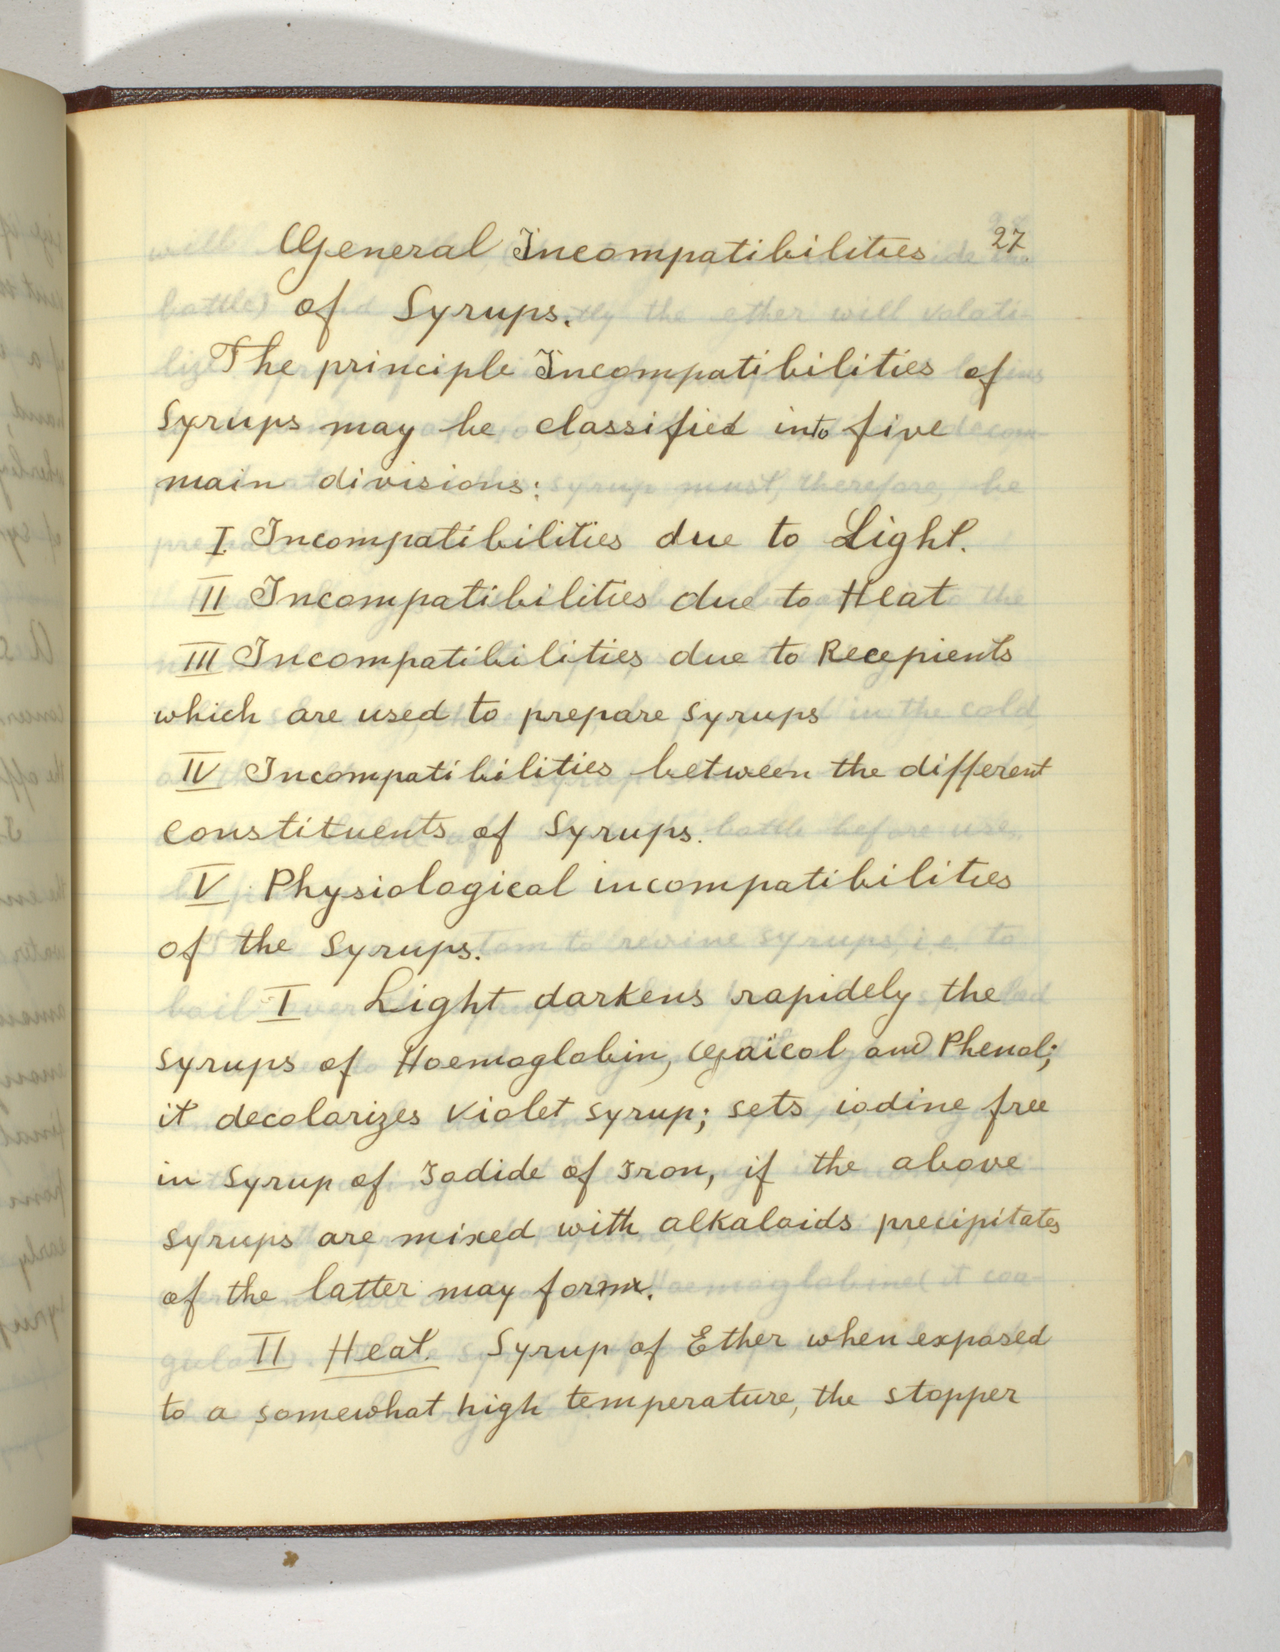 27
General Incompatibilities
of Syrups.
The principle Incompatibilities of
Syrups may be classified into five
main divisions:
I Incompatibilities due to Light.
II Incompatibilities due to Heat
III Incompatibilities due to Recepients
which are used to prepare Syrups
IV Incompatibilities between the different
constituents of Syrups.
V Physiological incompatibilities
of the Syrups.
I Light darkens rapidely the
Syrups of Haemoglobin, Gaïcol and Phenol;
it decolorizes Violet Syrup; sets iodine free
in Syrup of Iodide of Iron, if the above
Syrups are mixed with alkaloids precipitates
of the latter may form.
II Heat. Syrup of Ether when exposed
to a somewhat high temperature, the stopper